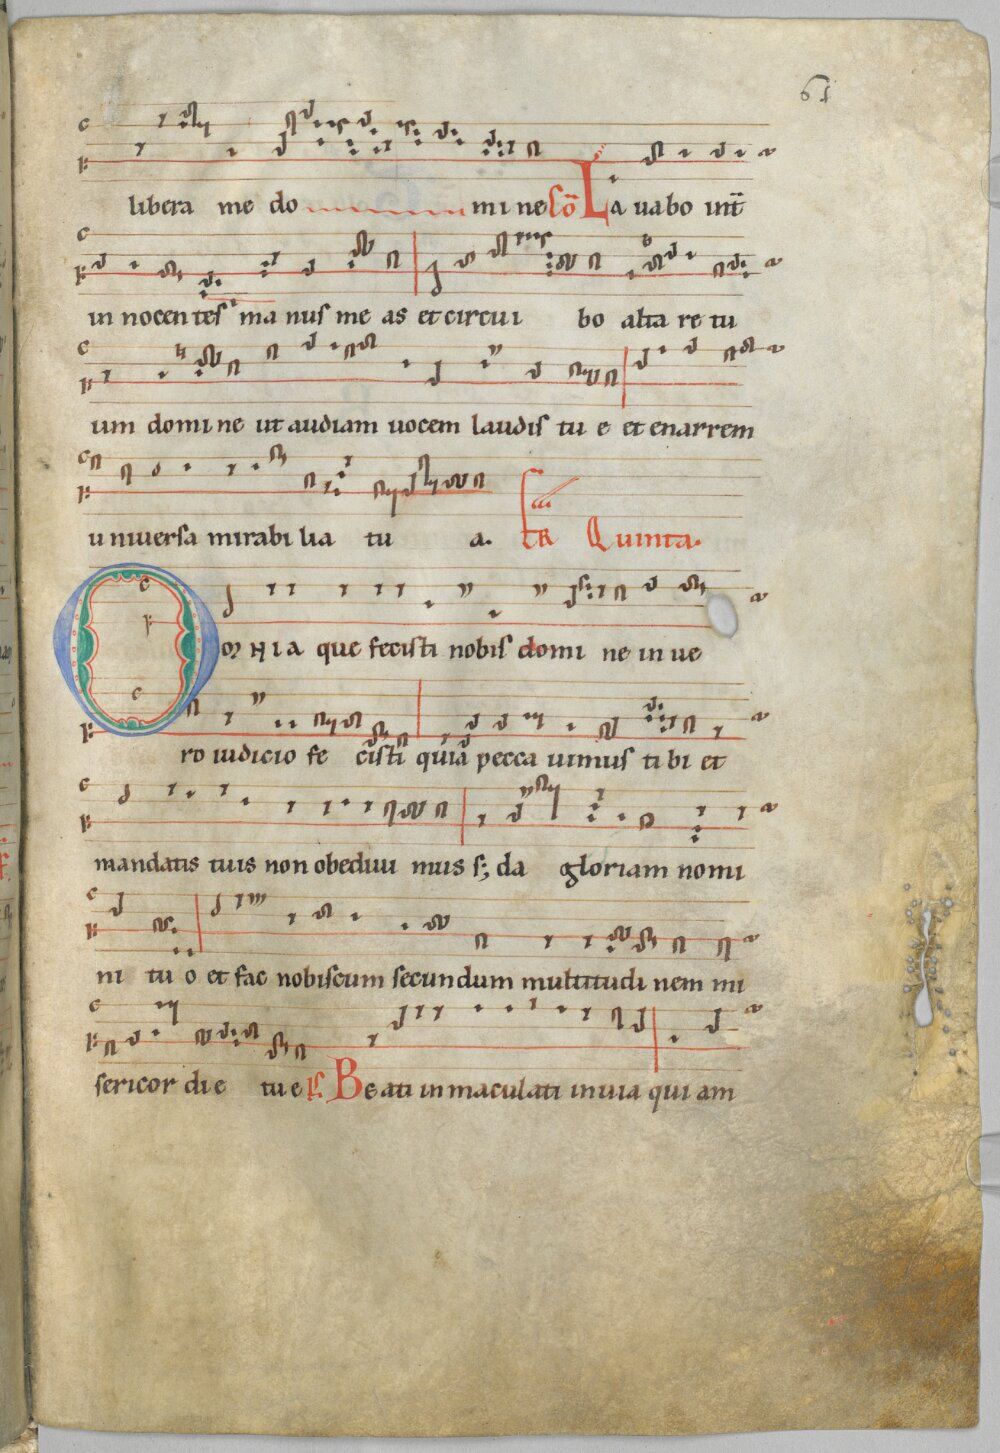 61
libera me do mi ne Cō La uabo int̄
in nocentes ma nus me as et circui bo alta re tu
um domi ne ut audiam uocem laudis tu e et enarrem
uniuersa mirabi lia tu a. Quinta.
OMNIA que fecisti nobis domi ne in ue
ro iudicio fe cisti quia pecca uimus ti bi et
mandatis tuis non obediui mus s; da gloriam nomi
ni tu o et fac nobiscum secundum multitudi nem mi
sericor di e tu e Ps Beati inmaculati in uia qui am